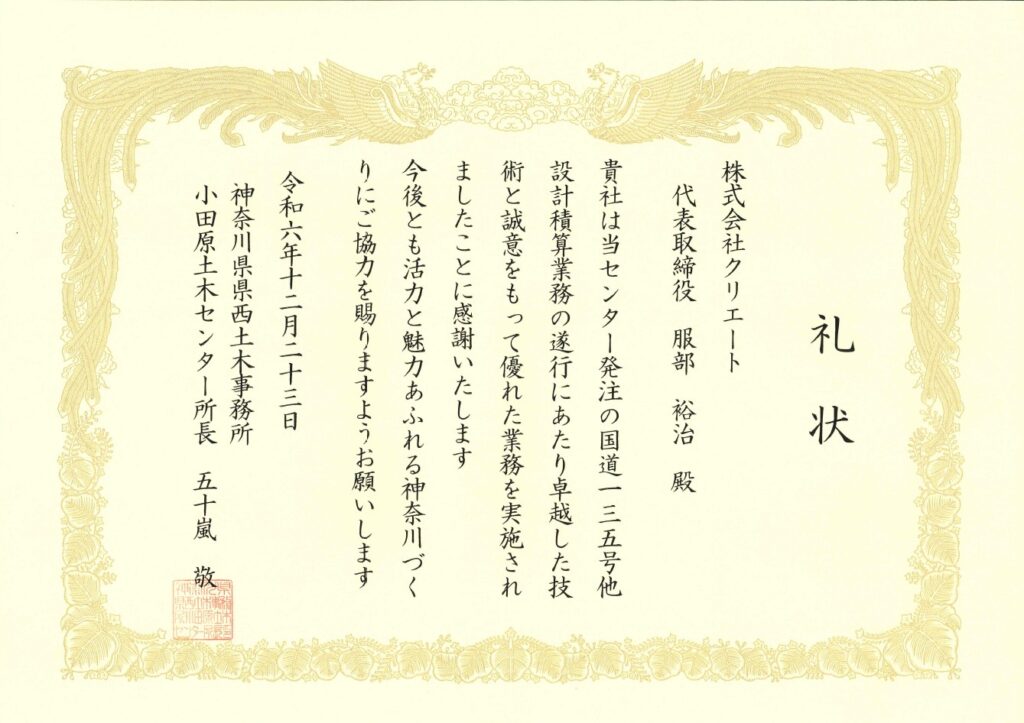 礼状
株式会社クリエート
代表取締役 服部 裕治 殿
貴社は当センター発注の国道一三五号他
設計積算業務の遂行にあたり卓越した技
術と誠意をもって優れた業務を実施され
ましたことに感謝いたします
今後とも活力と魅力あふれる神奈川づく
りにご協力を賜りますようお願いします
令和六年十二月二十三日
神奈川県県西土木事務所
小田原土木センター所長 五十嵐 敬